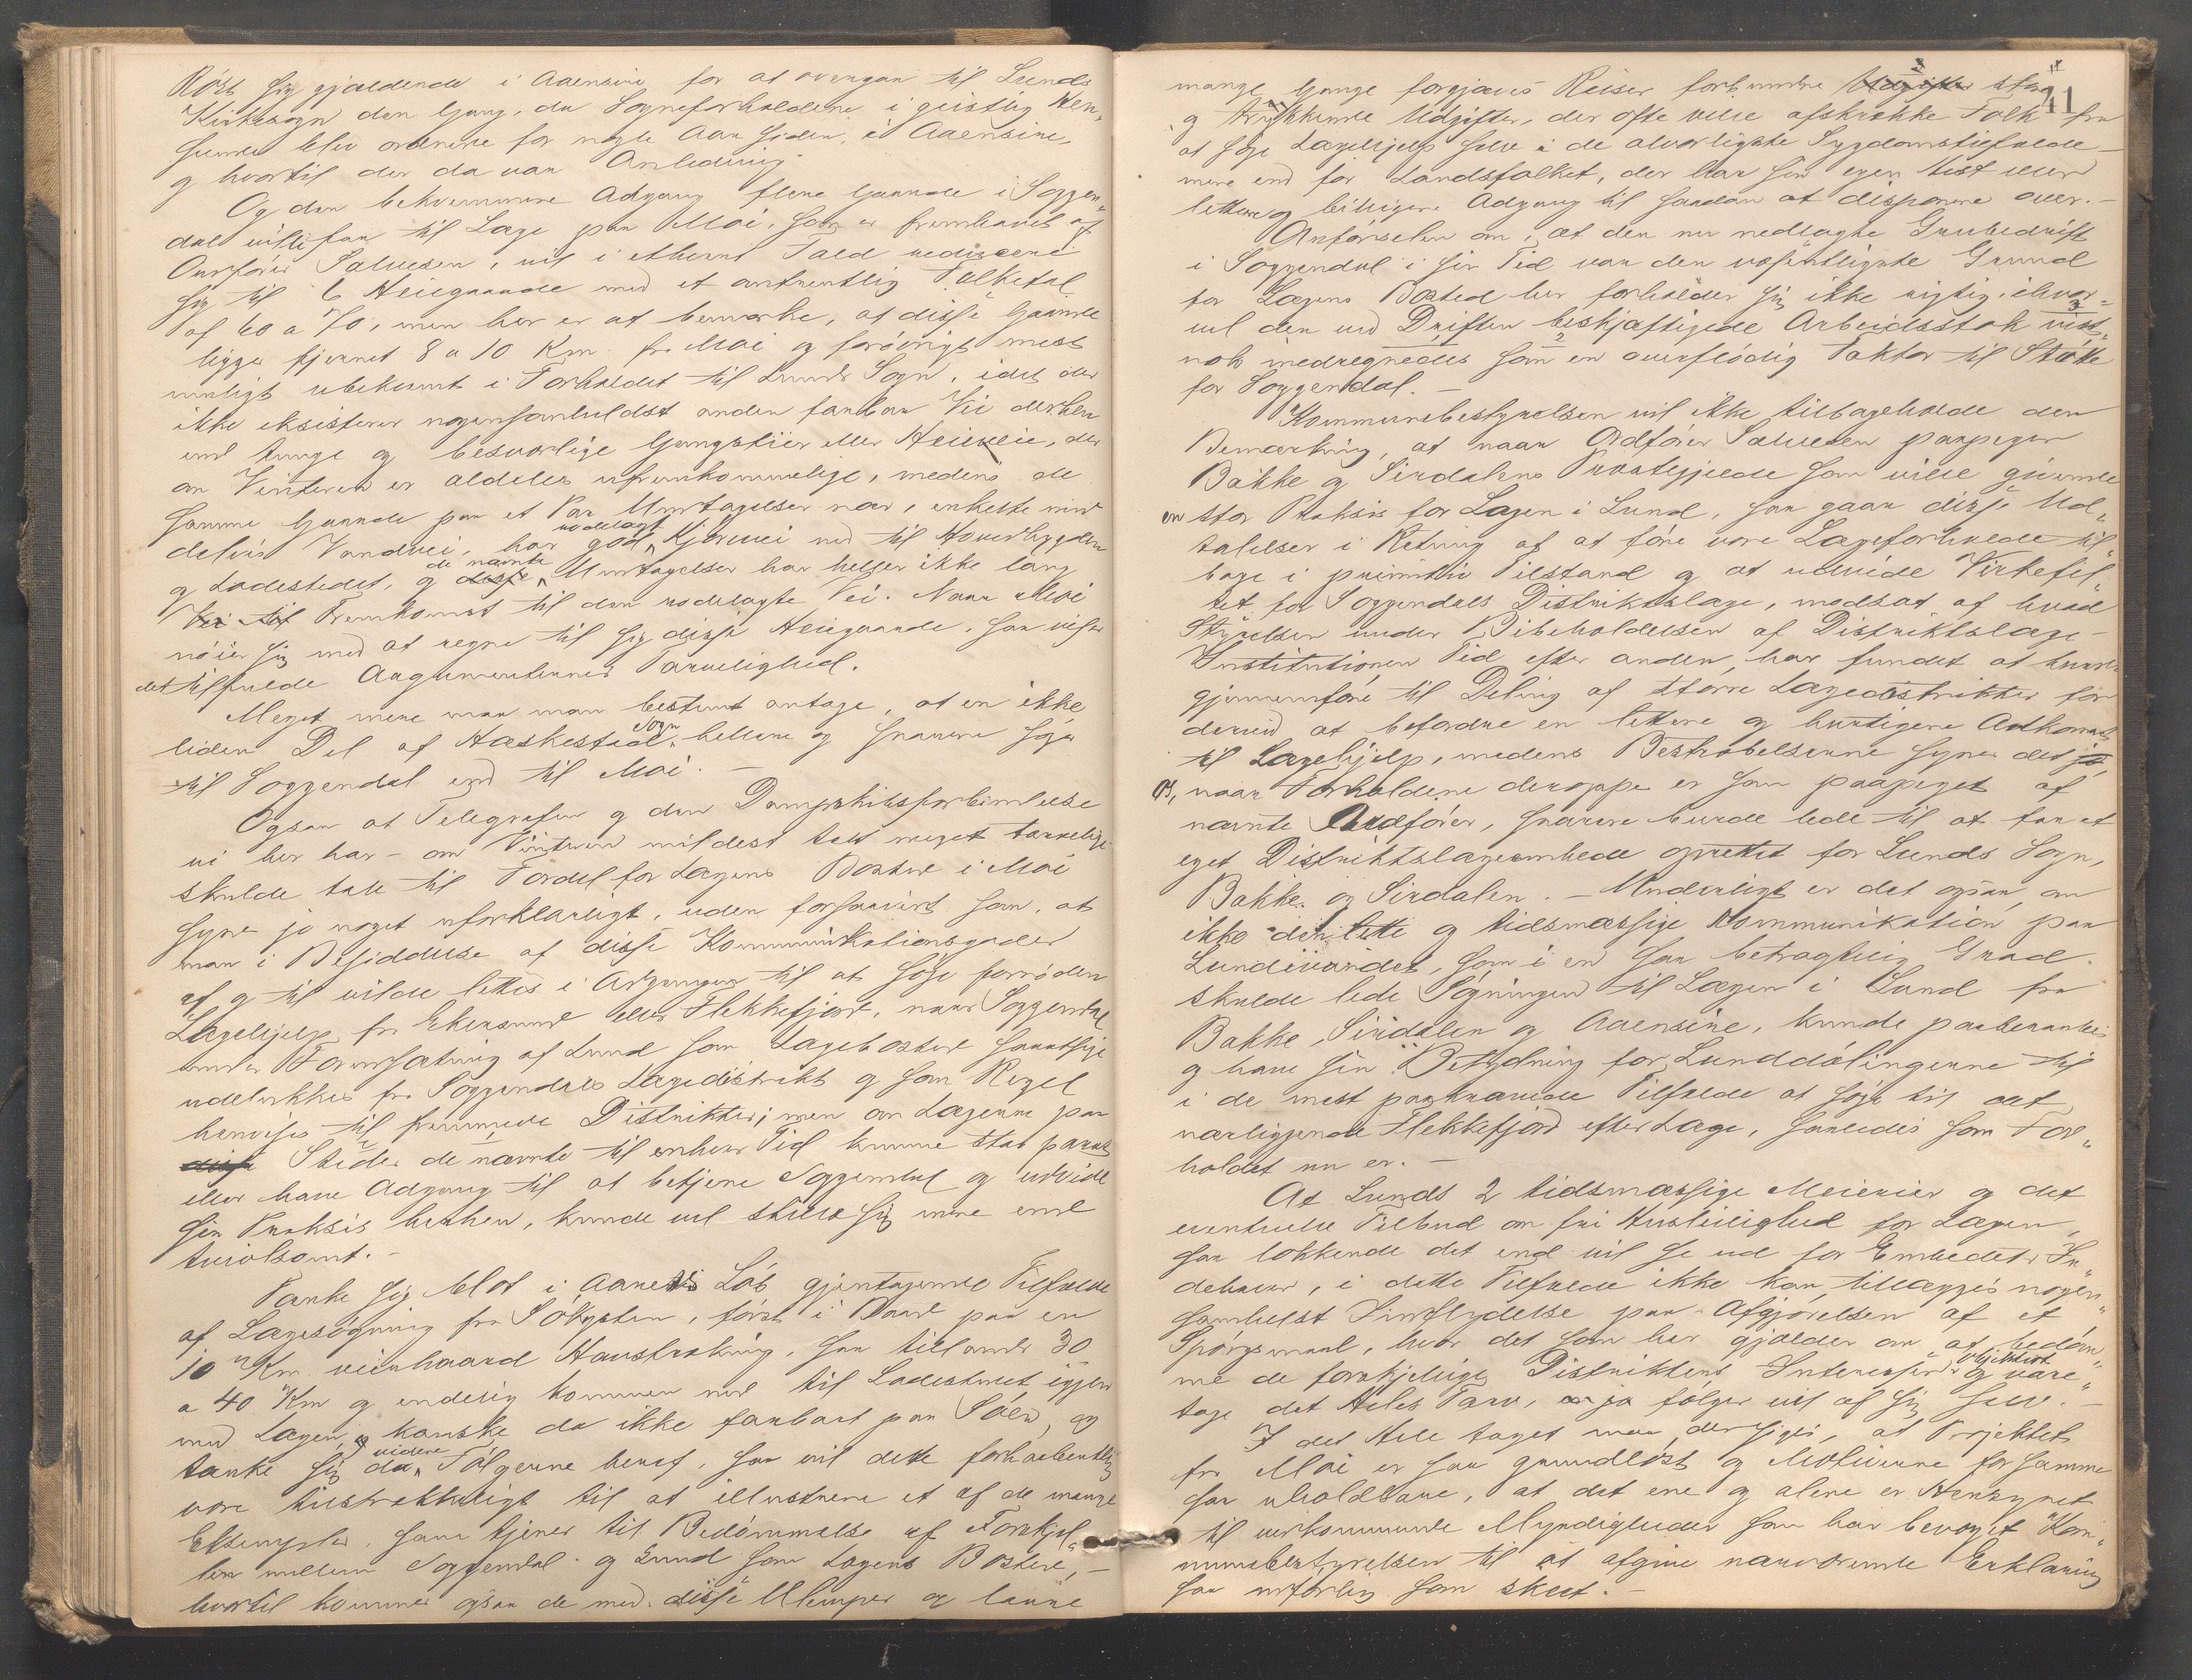 Röst sig gjældende i Aaensire for at overgaa til Lunds
Kirkesogn den Gang, da Sogneforholdene i geistlig Hen„
seende blev ordnede for nogle Aar siden i Aaensire,
og hvortil der da var Anledning.
Og den bekvemmere Adgang flere Gaarde i Soggen„
dal vilde faa til Læge paa Moi, som er fremhævet af
Ordfører Salvesen, vil i ethvert Fald reducere
sig til 6 Heiegaarde med et omtrentlig Folketal
af 60 a 70, men her er at bemærke, at disse Gaarde
ligger fjernet 8 a 10 Km. fra Moi og forövrigt mest
muligt ubekvemt i Forholdet til Lunds Sogn, idet der
ikke eksisterer nogensomhelst anden farbar Vei derhen
end tunge og besværlige Gangstier eller Heieveie, der
om Vinteren er aldeles ufremkommelige, medens de
samme Gaarde paa et Par Undtagelser nær, enkelte med
delvis Vandvei, har god rodelagt Kjörevei ned til Hovedbygden
og Ladestedet, og de nævnte Undtagelser har heller ikke lang
Vei til Fremkomst til den rodelagte Vei. Naar Moi
nöier sig med at regne til sig disse Heiegaarde, saa viser
det tilfulde Argumenternes Tarvelighed.
Meget mere maa man bestemt antage, at en ikke
liden Del af Hæskestad Sogn hellere og snarere söger
til Soggendal end til Moi. —
Ogsaa at Telegrafen og den Dampskibsforbindelse
vi her har – om Vinteren mildest talt meget tarvelig
skulde tale til Fordel for Lægens Bosted i Moi
synes jo noget uforklarligt, uden forsaavidt som, at
man i Besiddelse af disse Kommunikationsgoder
af og til vilde lettes i Adgangen til at söge fornöden
Lægehjelp fra Ekersund eller Flekkefjord, naar Soggendal
under Forudsætning af Lund som Lægebosted saaatsige
udelukkes fra Soggendals Lægedistrikt og som Regel
henvises til fremmede Distrikter; men om Lægerne paa
disse Steder de nævnte til enhver Tid kunne staa parat
eller have Adgang til at betjene Soggendal og udvide
sin Praksis herhen, kunde vel stille sig mere end
tvivlsomt. –
Tænke sig blot i Aarets Löb gjentagende Tilfælde
af Lægesögning fra Sökysten, först i Baad paa en
10 Km. veirhaard Havstrækning, saa tillands 30
a 40 Km og endelig kommen ned til Ladestedet igjen
med Lægen, og kanske da ikke farbart paa Söen, og
tænke sig da videre Fölgerne heraf, saa vil dette forhaabentlig
være tilstrækkeligt til at illustrere et af de mange
Eksempler, som tjener til Bedömmelse af Forskjel„
len mellem Soggendal og Lund som Lægens Bosted, –
hvortil kommer ogsaa de med disse Ulemper og lange
41
mange Gange forgjæves Reiser forbundne Udgifter store
og trykkende Udgifter, der ofte vilde afskrække Folk fra
at söge Lægehjelp selv i de alvorligste Sygdomstilfælde –
mere end for Landsfolket, der har sin egen Hest eller
lettere og billigere Adgang til saadan at disponere over. –
Anförselen om, at den nu nedlagte Grubedrift
i Soggendal i sin Tid var den væsentligste Grund
for Lægens Bosted her forholder sig ikke rigtig, ihvor„
vel den ved Driften beskjæftigede Arbeidsstok vist„
nok medregnedes som en overflödig Faktor til Stötte
for Soggendal. –
Kommunebestyrelsen vil ikke tilbageholde den
Bemærkning, at naar Ordförer Salvesen paapeger
Bakke og Sirdalens Præstegjelde som vilde give
en stor Praksis for Lægen i Lund, saa gaar disse Ud„
talelser i Retning af at före vore Lægeforholde til„
bage i primitiv Tilstand og at udvide Virkefel„
tet for Soggendals Distriktslæge, modsat af hvad
Styrelsen under Bibeholdelsen af Distriktslæge–
Institutionen Tid efter anden har fundet at kunne
gjennemföre til Deling af större Lægedistrikter for
derved at befordre en lettere og hurtigere Adkomst
til Lægehjelp, medens Bestræbelserne synes det jo,
naar Forholdene deroppe er som paapeget af
nævnte Ordförer, snarere burde lede til at faa et
eget Distriktslægeembede oprettet for Lunds Sogn,
Bakke og Sirdalen. – Underligt er det ogsaa, om
ikke den lette og tidsmæssige Kommunikation paa
Lundevandet, som i en saa betragtelig Grad
skulde lede Sögningen til Lægen i Lund fra
Bakke, Sirdalen og Aaensire, kunde paaberaabes
og have sin Betydning for Lunddölingerne til
i de mest paakrævede Tilfælde at söge til det
nærliggende Flekkefjord efter Læge, saaledes som For„
holdet nu er. –
At Lunds 2 tidsmæssige Meierier og det
eventuelle Tilbud om fri Husleilighed for Lægen,
saa lokkende det end vil se ud for Embedets In„
dehaver, i dette Tilfælde ikke kan tillægges nogen„
somhelst Indflydelse paa Afgjörelsen af et
Spörgsmaal, hvor det som her gjælder om at bedöm„
me de forskjellige Distrikters Interesser og objektivt vare„
tage det Heles Tarv, ja fölger vel af sig selv. –
I det Hele taget maa der siges, at Projektet
fra Moi er saa grundlöst og Motiverne for samme
saa uholdbare, at det ene og alene er Hensynet
til vedkommende Myndigheder som har bevæget Kom„
munebestyrelsen til at afgive nærværende Erklæring
saa udförlig som skeet. –